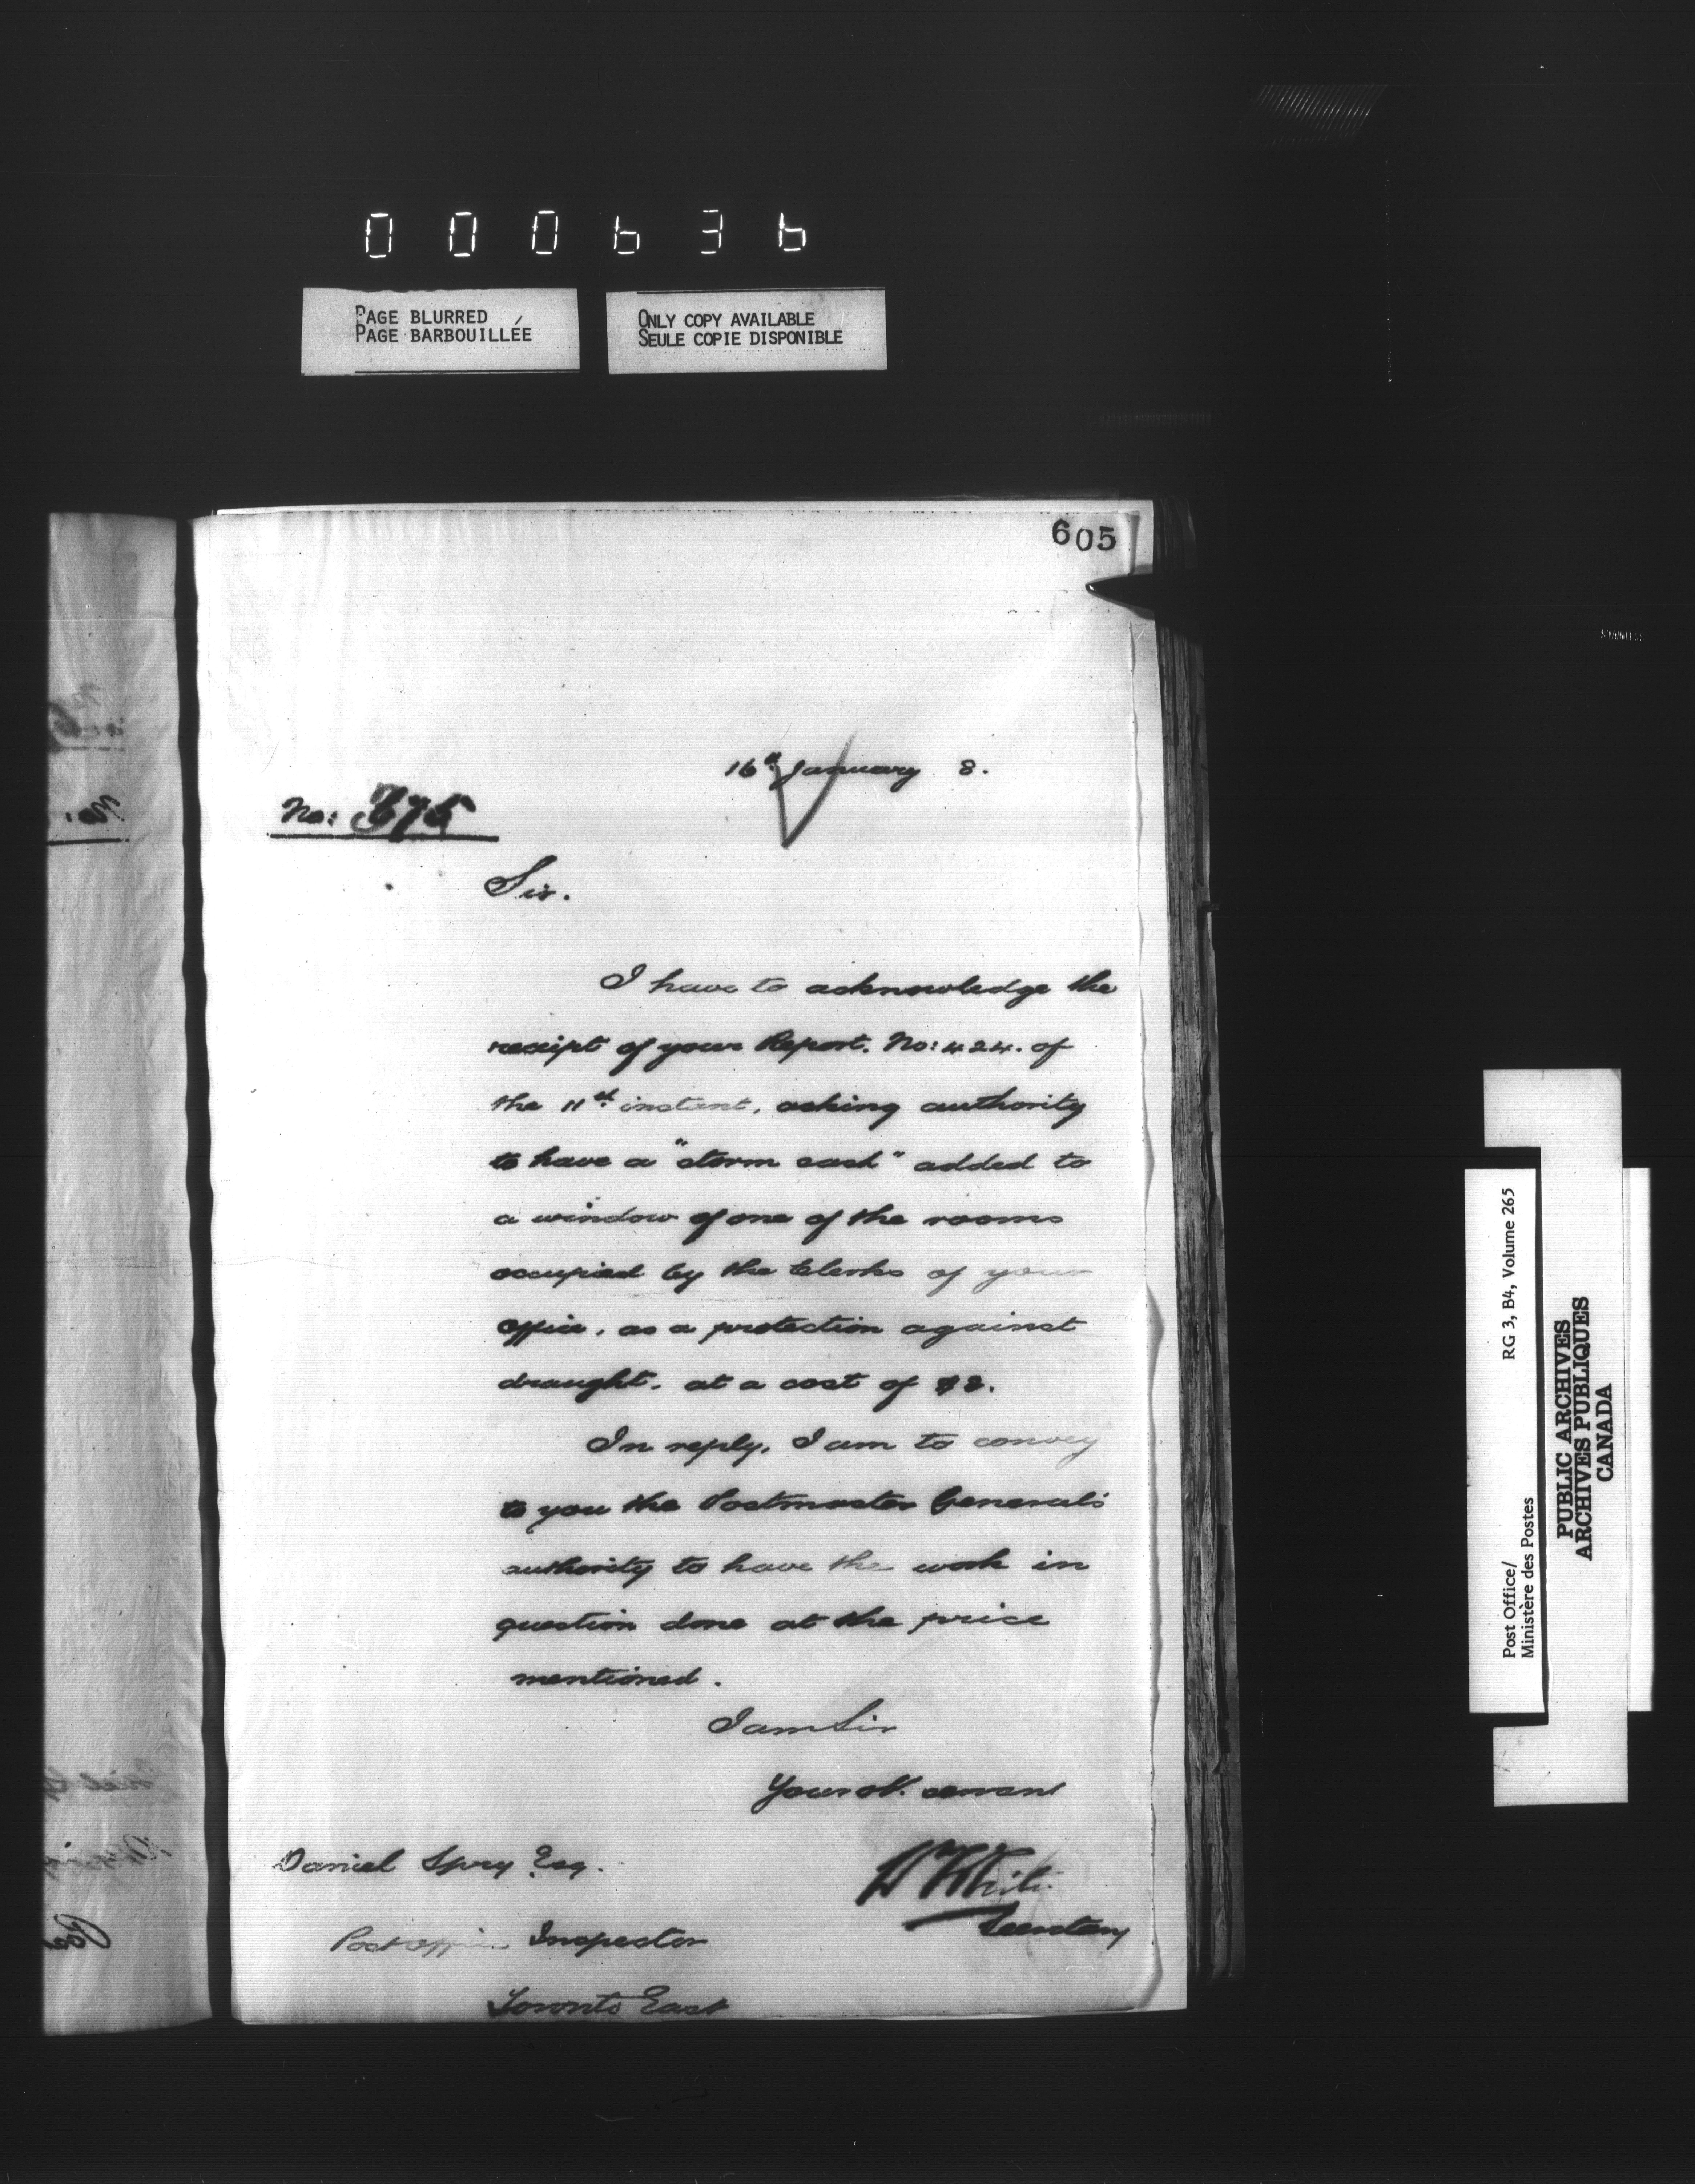 000636
PAGE BLURRED
PAGE BARBOUILLÉE
ONLY COPY AVAILABLE
SEULE COPIE DISPONIBLE
605
16th January 8.
No:
Sir.
I have to acknowledge the
receipt of your Report. No: 424. of
the 11th instant, asking authority
to have a "storm sash" added to
a window of one of the rooms
occupied by the Clerks of your
office, as a protection against
draught, at a cost of $8.
In reply, I am to convey
to you the Postmaster General's
authority to have the work in
question done at the price
mentioned.
I am Sir
Your ob. servant
White
Secretary
Daniel Spry Esq.
Post Office Inspector
Toronto East
STAINLESS
Post Office/
Ministère des Postes
RG 3, B4, Volume 265
PUBLIC ARCHIVES
ARCHIVES PUBLIQUES
CANADA